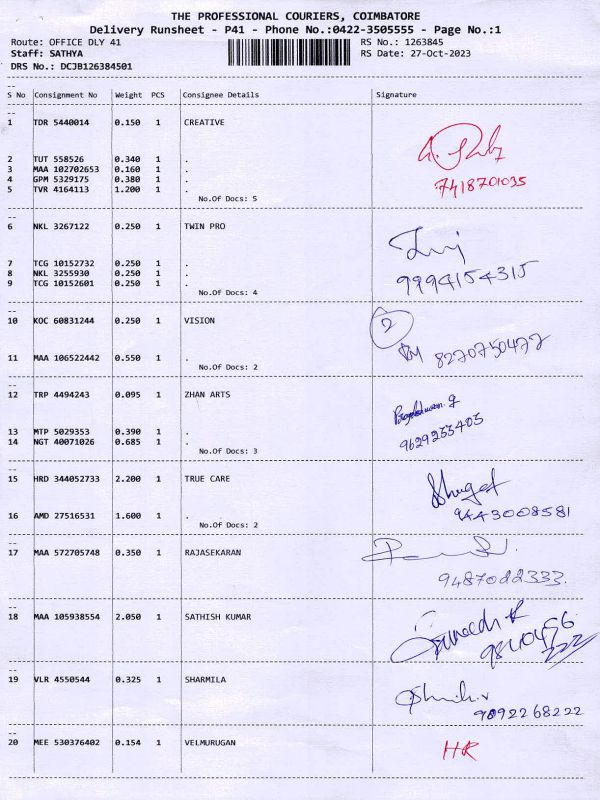 THE PROFESSIONAL COURIERS, COIMBATORE
Delivery Runsheet - P41 - Phone No.:0422-3505555 - Page No.:1
Route: OFFICE DLY 41 RS No.: 1263845
Staff: SATHYA RS Date: 27-Oct-2023
DRS No.: DCJB126384501
--
S No Consignment No Weight PCS Consignee Details Signature
--
1 TDR 5440014 0.150 1 CREATIVE
2 TUT 558526 0.340 1 .
3 MAA 102702653 0.160 1 .
4 GPM 5329175 0.380 1 . 7418701035
5 TVR 4164113 1.200 1 .
No.Of Docs: 5
--
6 NKL 3267122 0.250 1 TWIN PRO
7 TCG 10152732 0.250 1 .
8 NKL 3255930 0.250 1 . 9994154315
9 TCG 10152601 0.250 1 .
No.Of Docs: 4
--
10 KOC 60831244 0.250 1 VISION 2
11 MAA 106522442 0.550 1 . 8270750477
No.Of Docs: 2
--
12 TRP 4494243 0.095 1 ZHAN ARTS
13 MTP 5029353 0.390 1 . 9629255405
14 NGT 40071026 0.685 1 .
No.Of Docs: 3
--
15 HRD 344052733 2.200 1 TRUE CARE
16 AMD 27516531 1.600 1 . 9443008581
No.Of Docs: 2
--
17 MAA 572705748 0.350 1 RAJASEKARAN
9487022333.
--
18 MAA 105938554 2.050 1 SATHISH KUMAR
9840496
222
--
19 VLR 4550544 0.325 1 SHARMILA
9092268222
--
20 MEE 530376402 0.154 1 VELMURUGAN HR